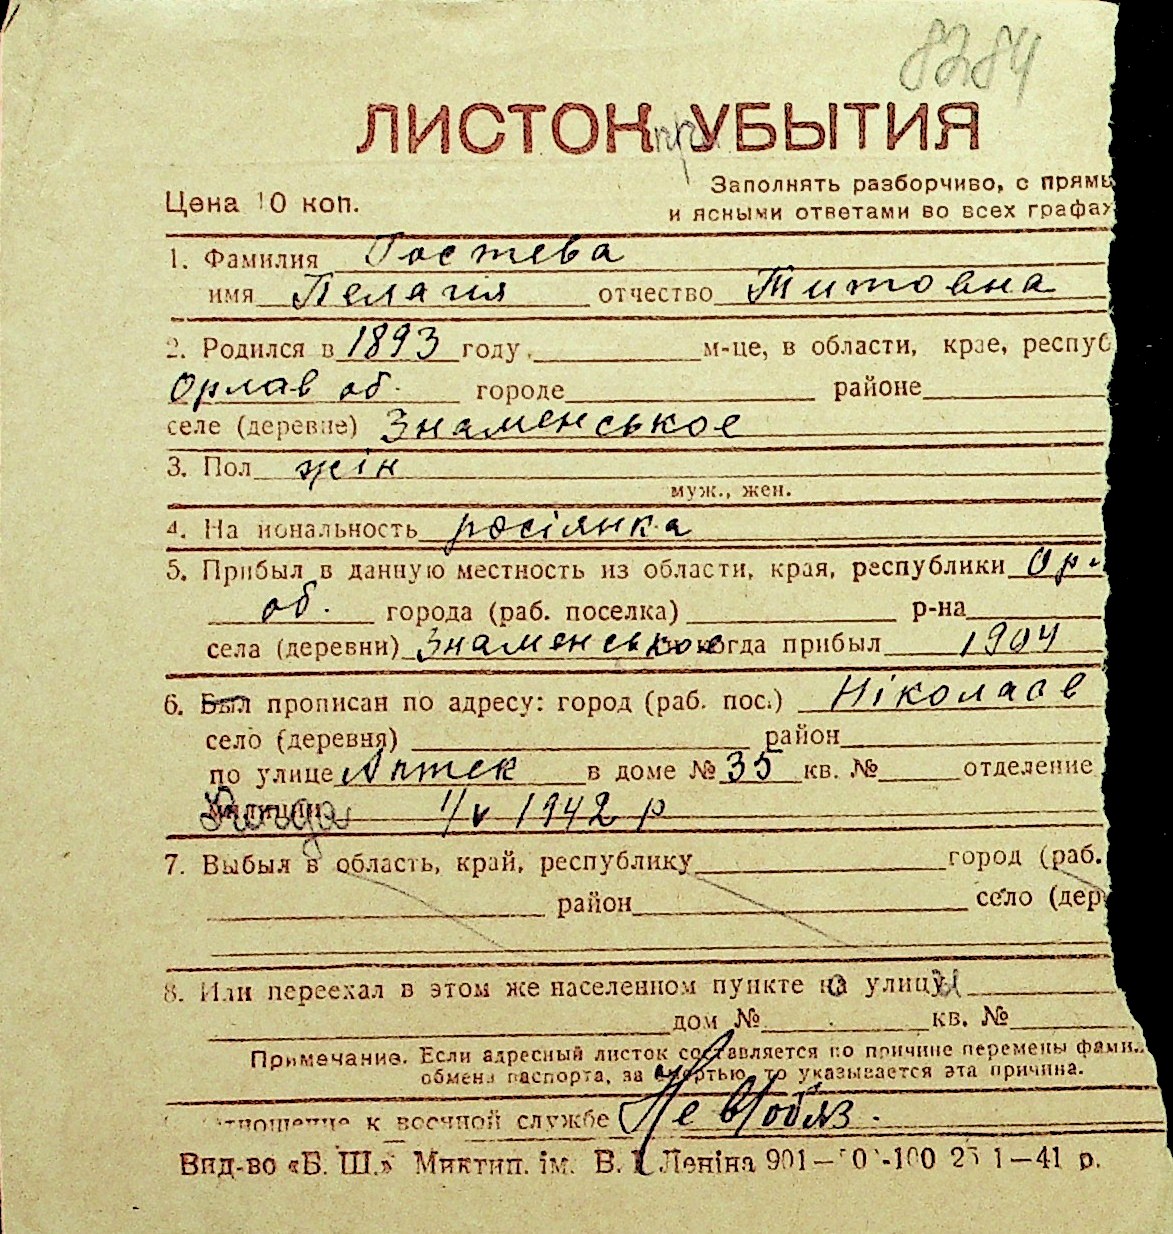 8284
ЛИСТОК пр УБЫТИЯ
Заполнять разборчиво, с прямы
Цена 10 коп.
и ясными ответами во всех графах
1. Фамилия Гостева
имя Пелагия отчество Титовна
2. Родился в 1893 году. м-це, в области, крае, респуб
Орлав об. городе районе
селе (деревне) Знаменськое
3. Пол жін
муж., жен.
4. На иональность росіянка
5. Прибыл в данную местность из области, края, республики Ор
об. города (раб. поселка) р-на
села (деревни) Знаменськое когда прибыл 1904
6. Был прописан по адресу: город (раб. пос.) Ніколаєв
село (деревня) район
по улице Аптек в доме № 35 кв. № отделение
Когда 1/v 1942 р
7. Выбыл в область, край, республику город (раб.
район село (дер
8. Или переехал в этом же населенном пункте на улицы
дом № кв. №
Примечание. Если адресный листок составляется по причине перемены фами
обмена паспорта, за смертью, то указывается эта причина.
тношение к военной службе Не вобяз.
Вид-во «Б. Ш.» Миктип. ім. В. І. Леніна 901— 0 -100 25 1—41 р.